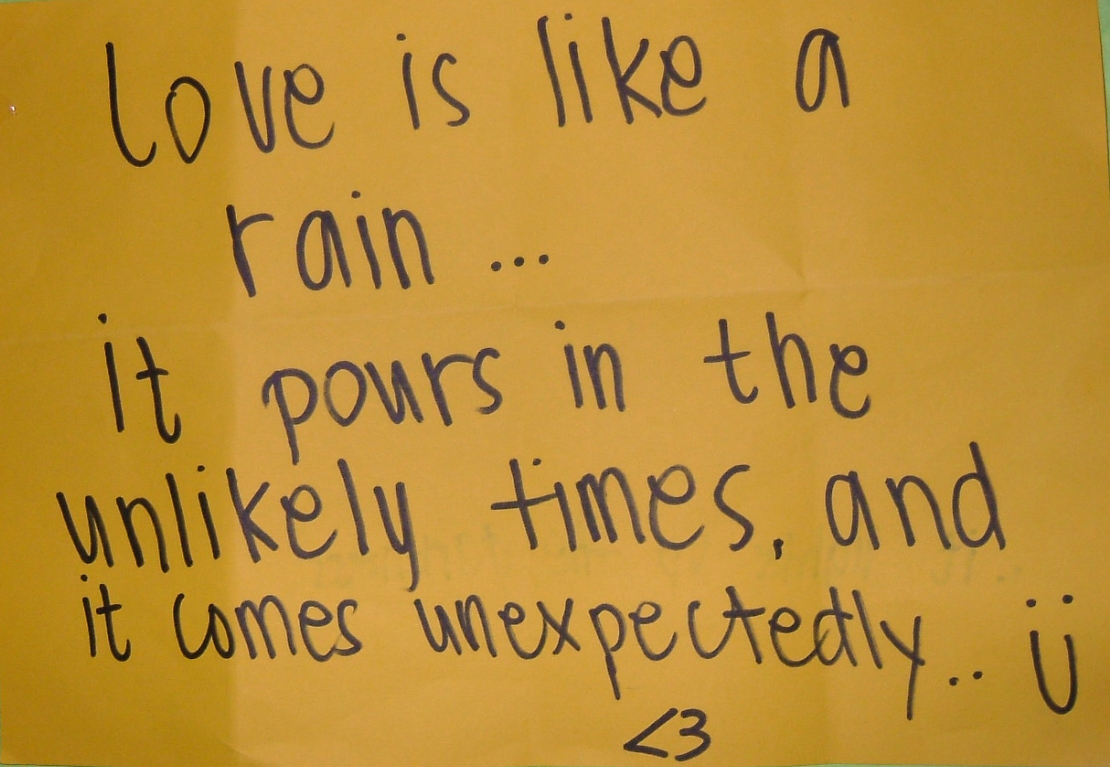 love is like a
rain ...
it pours in the
unlikely times, and
it comes unexpectedly.. Ü
<3